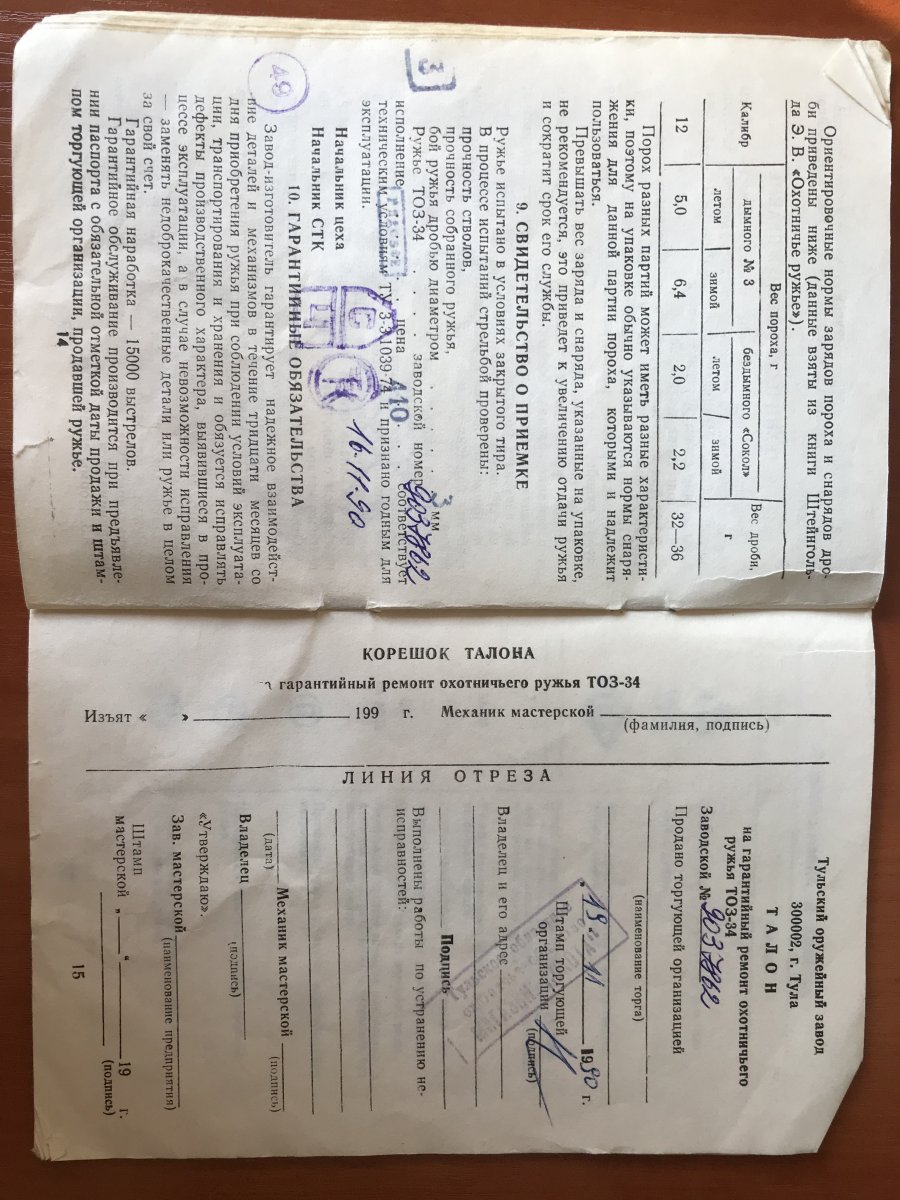 Ориентировочные нормы зарядов пороха и снарядов дро-
би приведены ниже (данные взяты из книги Штейнголь-
да Э. В. «Охотничье ружье»).
Калибр
Вес пороха, г
Вес дроби, г
дымного № 3
бездымного «Сокол»
летом
зимой
летом
зимой
12 5,0 6,4 2,0 2,2 32—36
Порох разных партий может иметь разные характеристи-
ки, поэтому на упаковке обычно указываются нормы снаря-
жения для данной партии пороха, которыми и надлежит
пользоваться.
Превышать вес заряда и снаряда, указанные на упаковке,
не рекомендуется, это приведет к увеличению отдачи ружья
и сократит срок его службы.
9. СВИДЕТЕЛЬСТВО О ПРИЕМКЕ
Ружье испытано в условиях закрытого тира.
В процессе испытаний стрельбой проверены:
прочность стволов,
прочность собранного ружья,
бой ружья дробью диаметром 3 мм
Ружье ТОЗ-34 заводской номер
исполнение цена 410 соответствует
техническим условиям и признано годным для
эксплуатации.
3
Начальник цеха
Начальник СТК
16.11.90
10. ГАРАНТИЙНЫЕ ОБЯЗАТЕЛЬСТВА
49
Завод-изготовитель гарантирует надежное взаимодейст-
вие деталей и механизмов в течение тридцати месяцев со
дня приобретения ружья при соблюдении условий эксплуата-
ции, транспортирования и хранения и обязуется исправлять
дефекты производственного характера, выявившиеся в про-
цессе эксплуатации, а в случае невозможности исправления
— заменять недоброкачественные детали или ружье в целом
за свой счет.
Гарантийная наработка — 15000 выстрелов.
Гарантийное обслуживание производится при предъявле-
нии паспорта с обязательной отметкой даты продажи и штам-
пом торгующей организации, продавшей ружье.
14
КОРЕШОК ТАЛОНА
гарантийный ремонт охотничьего ружья ТОЗ-34
Изъят « » 199 г. Механик мастерской
(фамилия, подпись)
ЛИНИЯ ОТРЕЗА
Тульский оружейный завод
300002, г. Тула
ТАЛОН
на гарантийный ремонт охотничьего
ружья ТОЗ-34
Заводской №
Продано торгующей организацией
(наименование торга)
19 11 1990 г.
Штамп торгующей
организации
(подпись)
Владелец и его адрес
Подпись
Выполнены работы по устранению не-
исправностей:
Механик мастерской
(дата) (подпись)
Владелец
(подпись)
«Утверждаю».
Зав. мастерской
(наименование предприятия)
Штамп
мастерской „ “ 19 г.
(подпись)
15